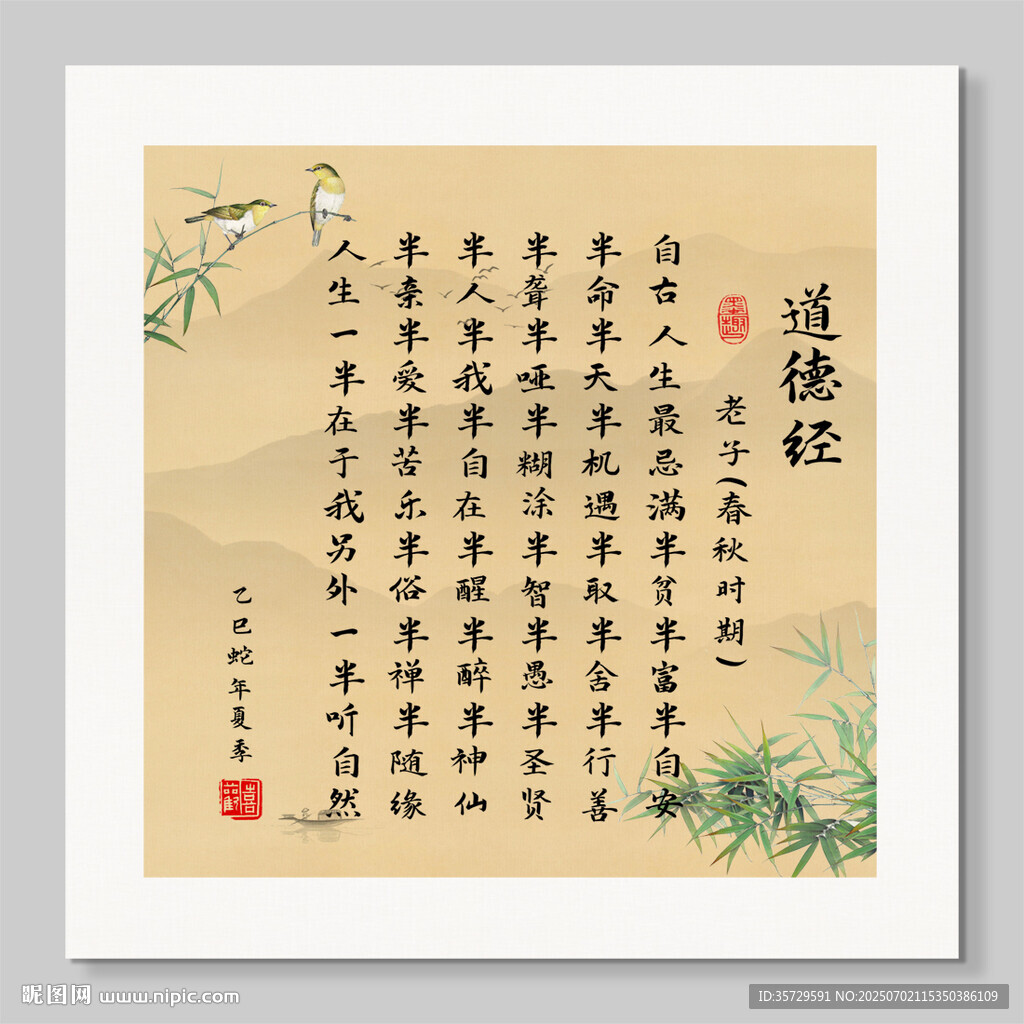 道德经
老子(春秋时期)
墨趣
自古人生最忌满半贫半富半自安
半命半天半机遇半取半舍半行善
半聋半哑半糊涂半智半愚半圣贤
半人半我半自在半醒半醉半神仙
半亲半爱半苦乐半俗半禅半随缘
人生一半在于我另外一半听自然
乙巳蛇年夏季
昵图网 www.nipic.com
ID:35729591 NO:20250702115350386109